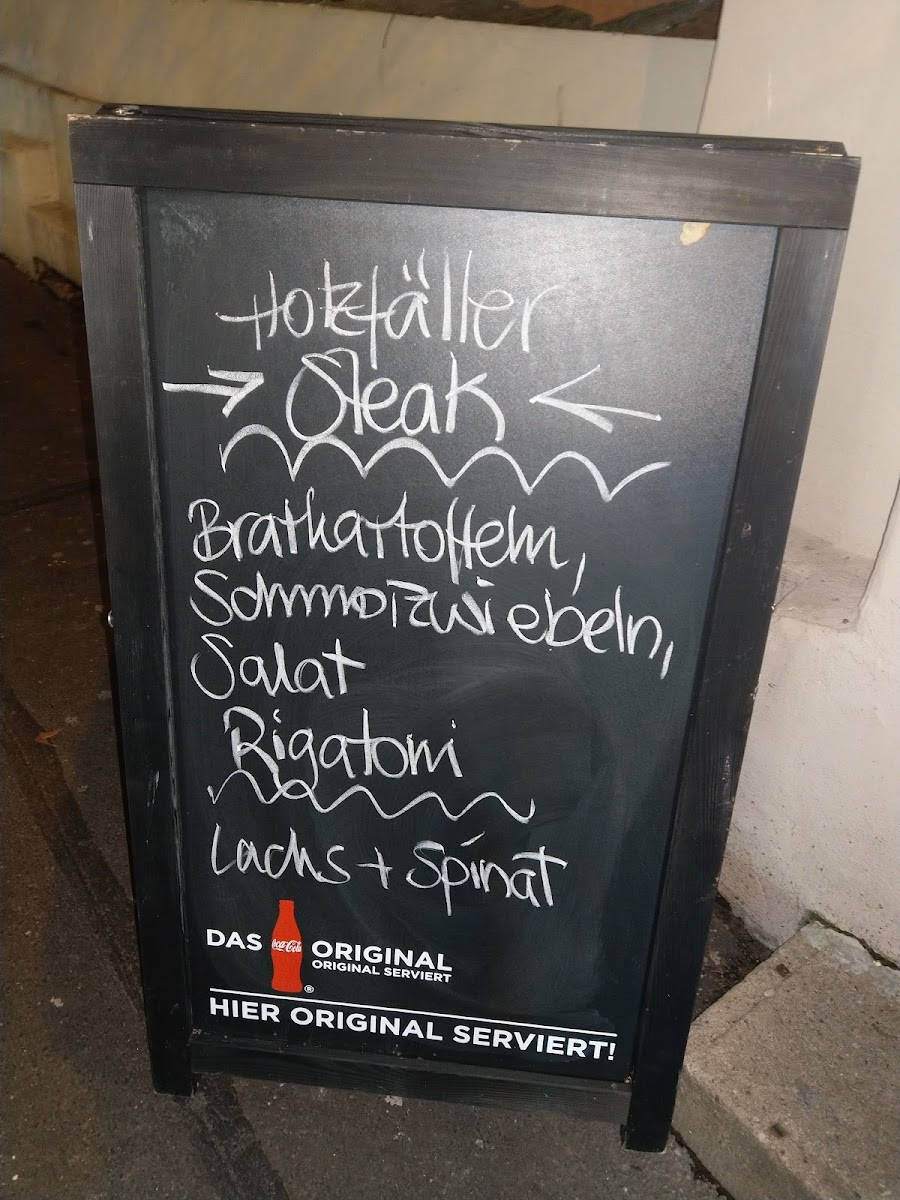 Holzfäller
Steak
Bratkartoffeln,
Schmolzzwiebeln,
Salat
Rigatoni
Lachs + Spinat
DAS Coca-Cola ORIGINAL
ORIGINAL SERVIERT
HIER ORIGINAL SERVIERT!